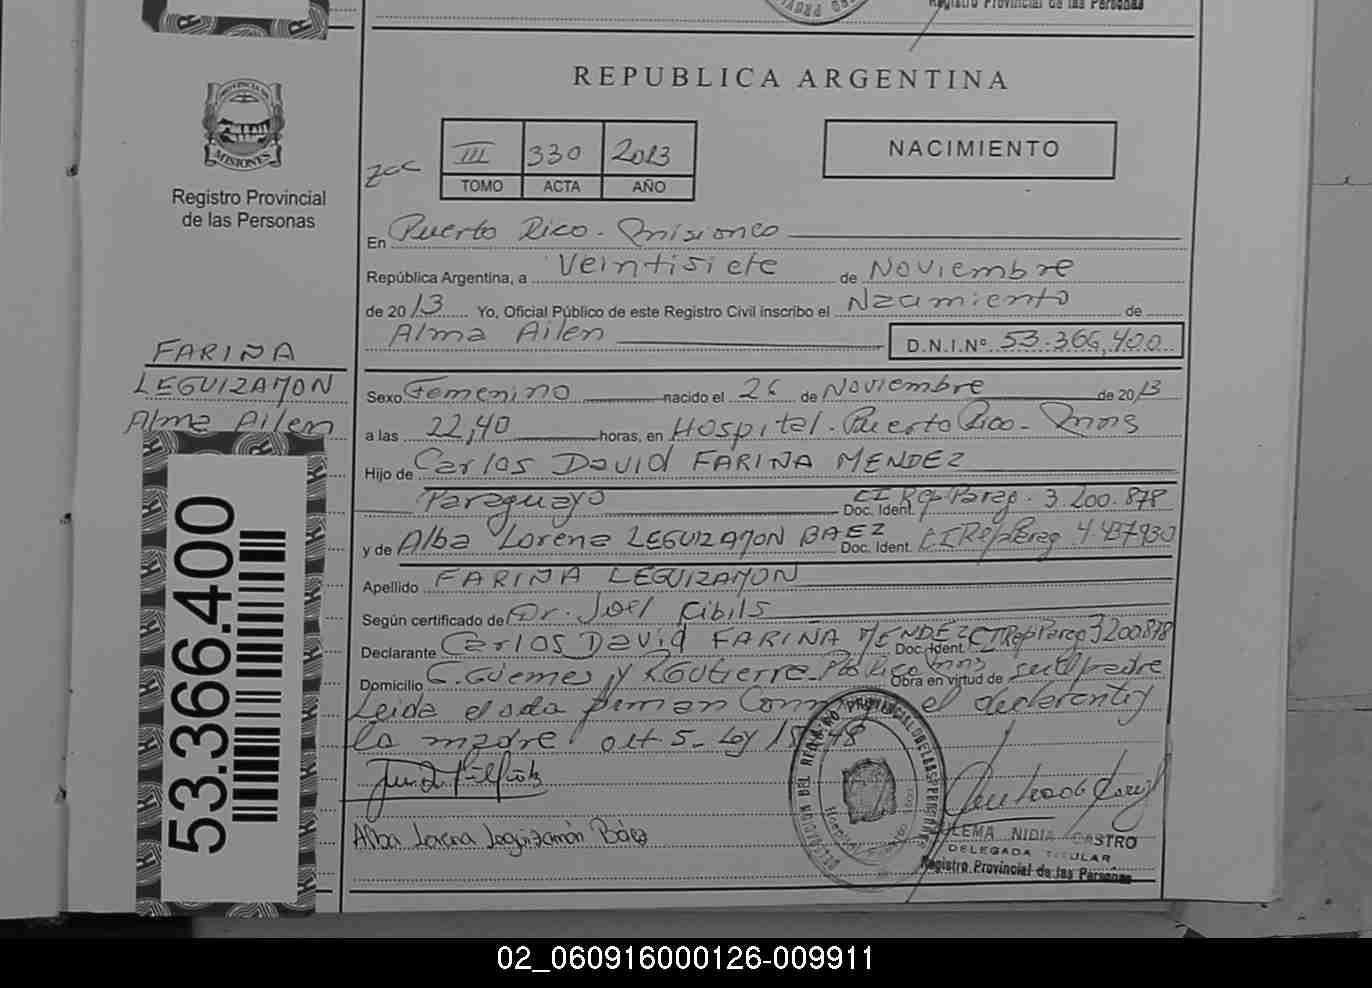 Registro Provincial de las Personas
REPUBLICA ARGENTINA
PROVINCIA DE
MISIONES
Registro Provincial
de las Personas
III 330 2013
TOMO ACTA AÑO
NACIMIENTO
En Puerto Rico - Misiones
República Argentina, a Veintisiete de Noviembre
de 2013 Yo, Oficial Público de este Registro Civil inscribo el Nacimiento de
Alma Ailen D.N.I.Nº 53.366,400
FARIÑA
LEGUIZAMON
Alma Ailen
Sexo Femenino nacido el 26 de Noviembre de 2013
a las 22,40 horas, en Hospital - Puerto Rico - Mnes
Hijo de Carlos David FARIÑA MENDEZ
Paraguayo Doc. Ident. CI Rep Parag. 3.200.878
y de Alba Lorena LEGUIZAMON BAEZ Doc. Ident. CI Rep Parag 4.497930
Apellido FARIÑA LEGUIZAMON
Según certificado de Dr. Joel Cibils
Declarante Carlos David FARIÑA MENDEZ Doc. Ident. CI Rep Parag 3200878
Domicilio C. Güemes y Obra en virtud de ser el padre
Leida el acta firman el declarante y
la madre. 5 - Ley
Alba Lorena Leguizamón Báez
LEMA NIDIA CASTRO
DELEGADA TITULAR
Registro Provincial de las Personas
53.366.400
02_060916000126-009911